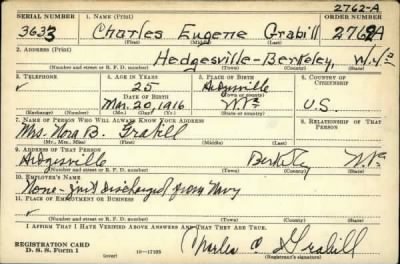 2762-A
SERIAL NUMBER 1. NAME (Print) ORDER NUMBER
3633 Charles Eugene Grabill 2762A
(First) (Middle) (Last)
2. ADDRESS (Print)
Hedgesville - Berkeley, W.Va
(Number and street or R. F. D. number) (Town) (County) (State)
3. TELEPHONE 4. AGE IN YEARS 5. PLACE OF BIRTH 6. COUNTRY OF CITIZENSHIP
✓ 25 Hedgesville
DATE OF BIRTH (Town or county)
Mar. 20, 1916 WVa U.S.
(Exchange) (Number) (Mo.) (Day) (Yr.) (State or country)
7. NAME OF PERSON WHO WILL ALWAYS KNOW YOUR ADDRESS 8. RELATIONSHIP OF THAT PERSON
Mrs. Nora B. Grabill
(Mr., Mrs., Miss) (First) (Middle) (Last)
9. ADDRESS OF THAT PERSON
Hedgesville Berkeley WVa
(Number and street or R. F. D. number) (Town) (County) (State)
10. EMPLOYER'S NAME
None - just discharged from Navy
11. PLACE OF EMPLOYMENT OR BUSINESS
✓
(Number and street or R. F. D. number) (Town) (County) (State)
I AFFIRM THAT I HAVE VERIFIED ABOVE ANSWERS AND THAT THEY ARE TRUE.
REGISTRATION CARD
D. S. S. Form 1 (over) 16-17105 Charles E Grabill
(Registrant's signature)